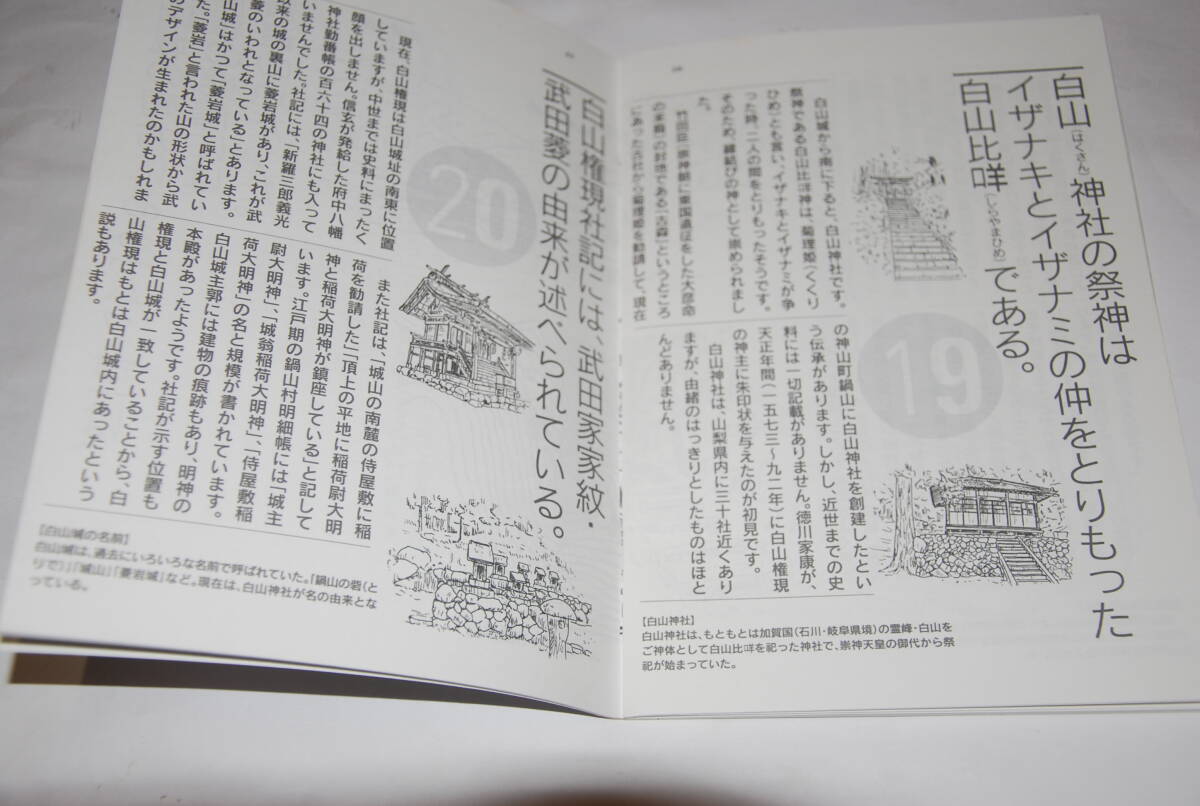 白山（はくさん）神社の祭神は
イザナキとイザナミの仲をとりもった
白山比咩（しらやまひめ）である。
19
白山城から南に下ると、白山神社です。
祭神である白山比咩神は、菊理姫（くくり
ひめ）とも言い、イザナキとイザナミが争
った時、二人の間をとりもったそうです。
そのため、縁結びの神として崇められまし
た。
の神山町鍋山に白山神社を創建したとい
う伝承があります。しかし、近世までの史
料には一切記載がありません。徳川家康が、
天正年間（一五七三〜九二年）に白山権現
の神主に朱印状を与えたのが初見です。
白山神社は、山梨県内に三十社近くあり
ますが、由緒のはっきりとしたものはほと
んどありません。
【白山神社】
白山神社は、もともとは加賀国（石川・岐阜県境）の霊峰・白山を
ご神体として白山比咩を祀った神社で、崇神天皇の御代から祭
祀が始まっていた。
白山権現社記には、武田家家紋・
武田菱の由来が述べられている。
20
現在、白山権現は白山城址の南東に位置
していますが、中世までは史料にまったく
顔を出しません。信玄が発給した府中八幡
神社勤番帳の百六十四の神社にも入って
いませんでした。社記には、「新羅三郎義光
以来の城の裏山に菱岩城があり、これが武
菱のいわれとなっている」とあります。
山城」はかつて「菱岩城」と呼ばれてい
た。「菱岩」と言われた山の形状から武
のデザインが生まれたのかもしれま
また社記は、「城山の南麓の侍屋敷に稲
荷を勧請した」「頂上の平地に稲荷尉大明
神と稲荷大明神が鎮座している」と記して
います。江戸期の鍋山村明細帳には「城主
尉大明神」、「城翁稲荷大明神」、「侍屋敷稲
荷大明神」の名と規模が書かれています。
白山城主郭には建物の痕跡もあり、明神の
本殿があったようです。社記が示す位置も
権現と白山城が一致していることから、白
山権現はもとは白山城内にあったという
説もあります。
【白山城の名前】
白山城は、過去にいろいろな名前で呼ばれていた。「鍋山の砦（と
りで）」「城山」「菱岩城」など。現在は、白山神社が名の由来とな
っている。